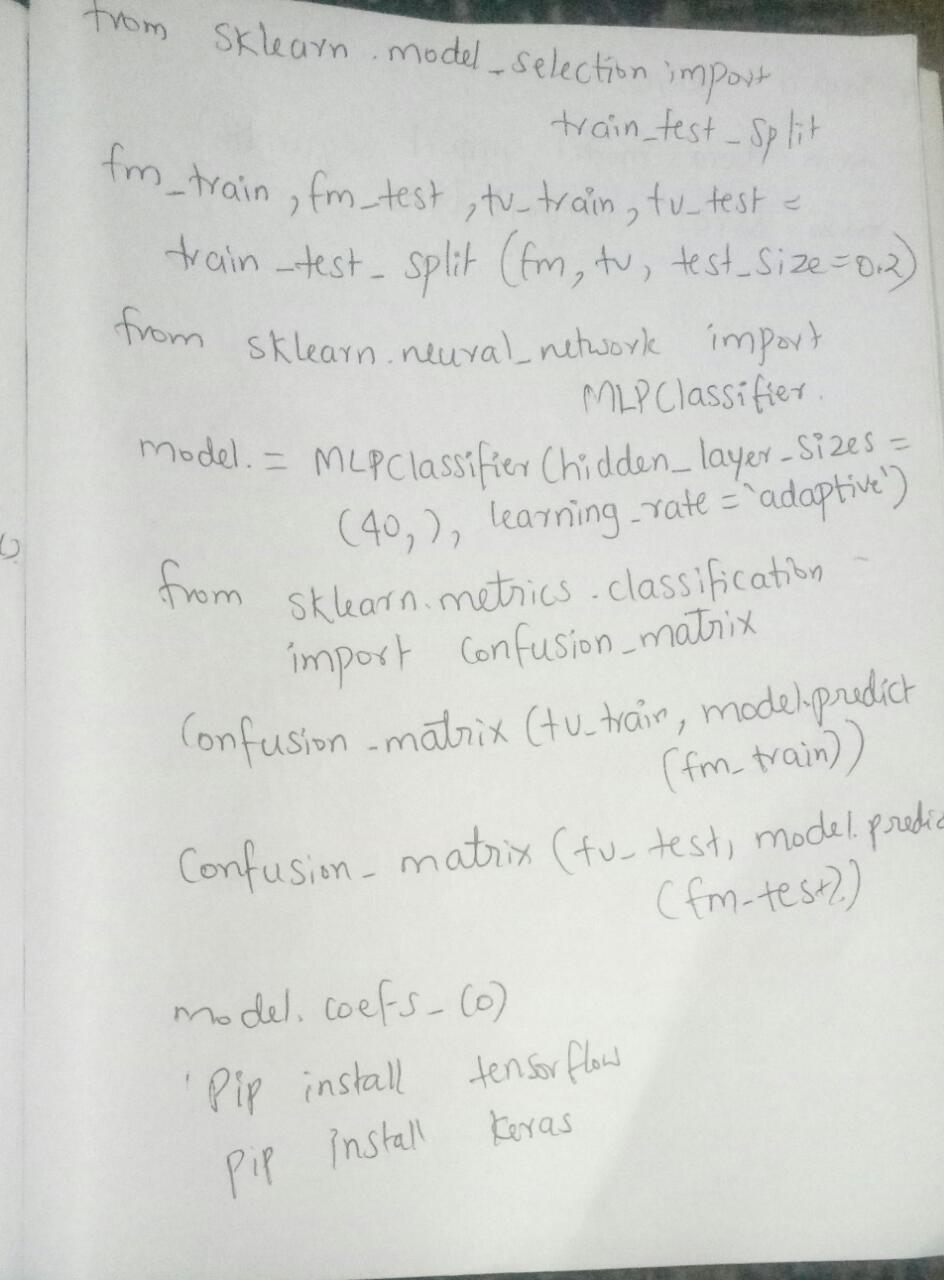 from sklearn.model_selection import
train_test_split
fm_train, fm_test, tv_train, tv_test =
train_test_split (fm, tv, test_size=0.2)
from sklearn.neural_network import
MLPClassifier.
model. = MLPClassifier (hidden_layer_sizes =
(40,), learning_rate = 'adaptive')
from sklearn.metrics.classification
import confusion_matrix
Confusion_matrix (tv_train, model.predict
(fm_train))
Confusion_matrix (tv_test, model.predic
(fm_test))
model.coefs_(0)
'Pip install tensorflow
pip install keras